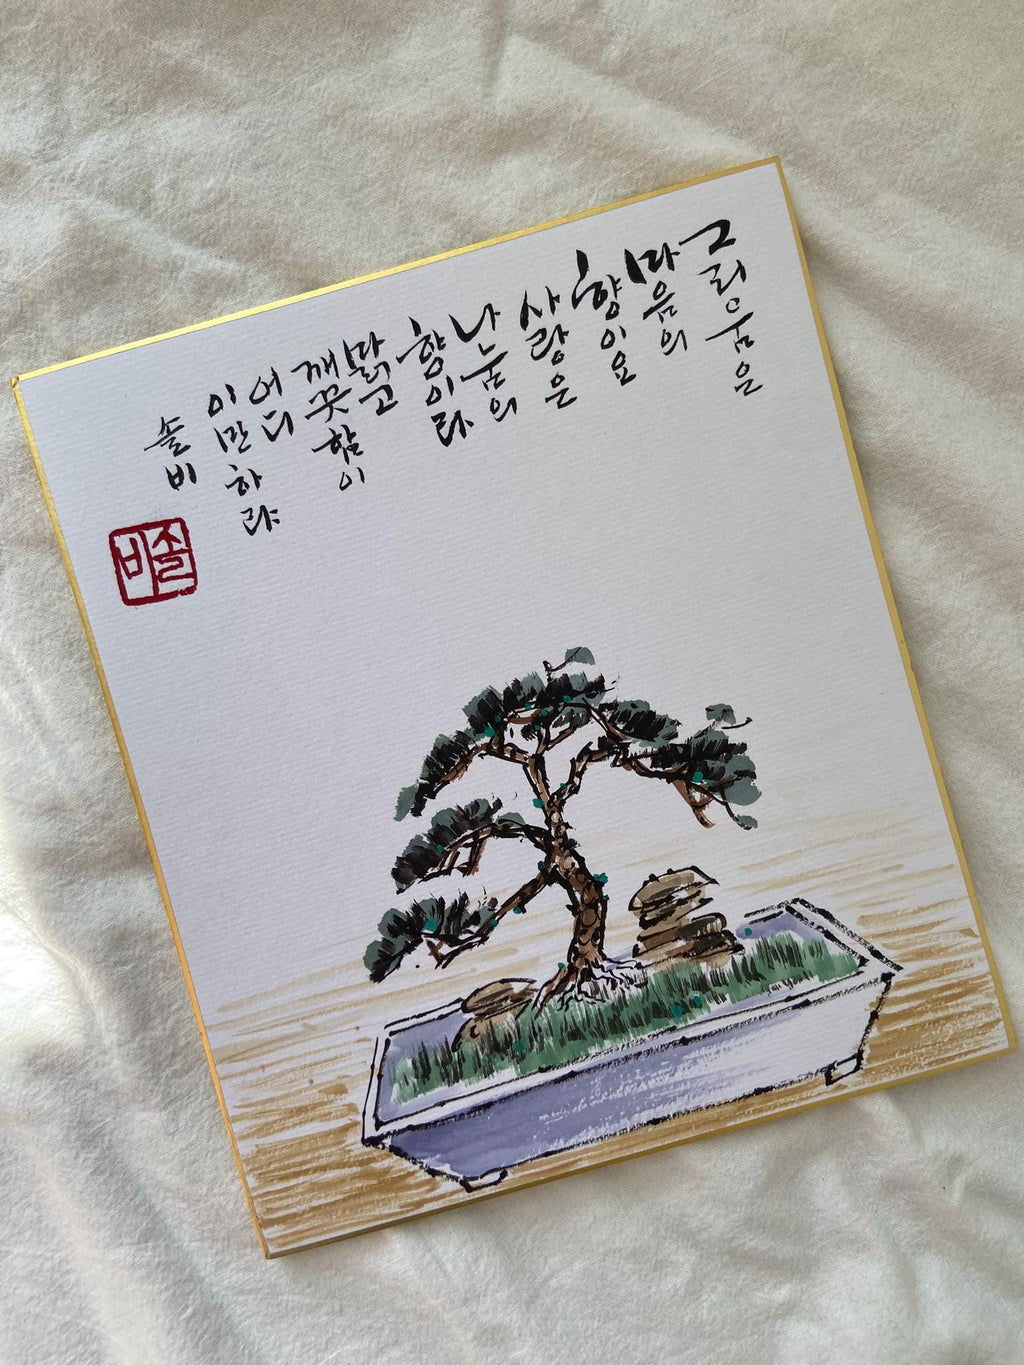 그리움은
마음의
향이요
사랑은
나눔의
향이라
맑고
깨끗함이
어디
이만하랴
솔비
솔비